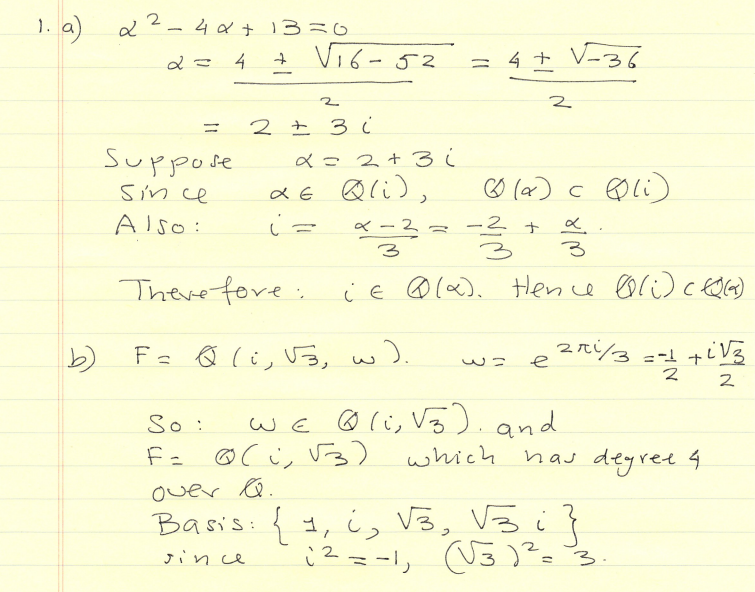 1. a) α² - 4α + 13 = 0
α = (4 ± √(16 - 52))/2 = (4 ± √-36)/2
= 2 ± 3i
Suppose α = 2 + 3i
since α ∈ Q(i), Q(α) ⊂ Q(i)
Also: i = (α - 2)/3 = -2/3 + α/3.
Therefore: i ∈ Q(α). Hence Q(i) ⊂ Q(α)
b) F = Q(i, √3, ω). ω = e^(2πi/3) = -1/2 + i√3/2
So: ω ∈ Q(i, √3). and
F = Q(i, √3) which has degree 4
over Q.
Basis: {1, i, √3, √3 i}
since i² = -1, (√3)² = 3.